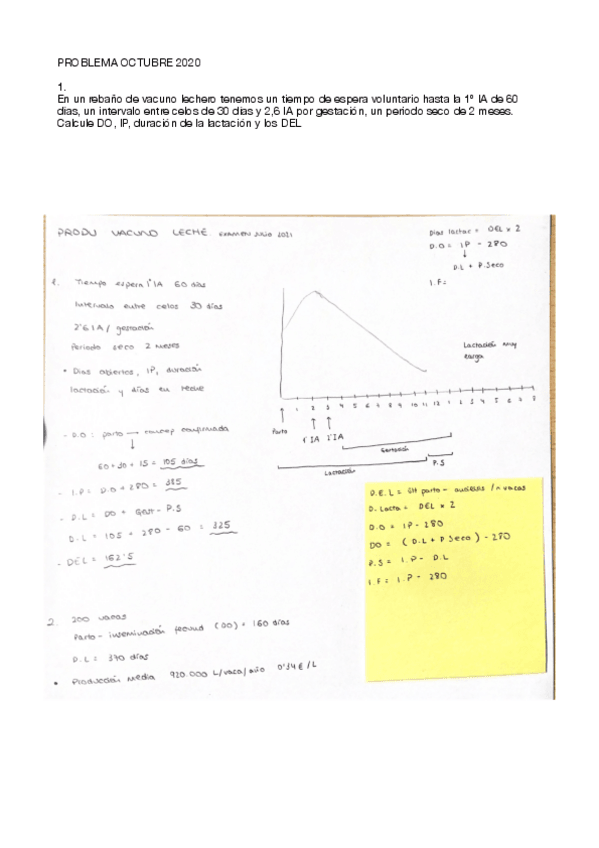 PROBLEMA OCTUBRE 2020
1.
En un rebaño de vacuno lechero tenemos un tiempo de espera voluntario hasta la 1º IA de 60
dias, un intervalo entre celos de 30 días y 2,6 IA por gestación, un periodo seco de 2 meses.
Calcule DO, IP, duración de la lactación y los DEL
PRODU VACUNO LECHE. EXAMEN JULIO 2021
Días lactac = DEL x 2
D.O = IP - 280
D.L + P.Seco
I.F:
1. Tiempo espera 1ª IA 60 días
Intervalo entre celos 30 días
2'6 IA / gestación
Periodo seco 2 meses
• Días abiertos, IP, duración
lactación y días en leche
Lactación muy
larga
1 2 3 4 5 6 7 8 9 10 11 12 1 2 3 4 5 6 7 8
Parto
1ª IA 2ª IA
Gestación
P.S
Lactación
- D.O: parto → concep confirmada
60 + 30 + 15 = 105 días
- I.P = D.O + 280 = 385
- D.L = DO + Gest - P.S
D.L = 105 + 280 - 60 = 325
- DEL = 162'5
parto - / n vacas
D. Lacta = DEL x 2
D.O = IP - 280
DO = (D.L + P Seco) - 280
P.S = I.P - D.L
I.F = I.P - 280
2. 200 vacas
Parto - inseminación fecund (DO) = 160 días
D.L = 370 días
• Producción media 920.000 L/vaca/año 0'34 € / L